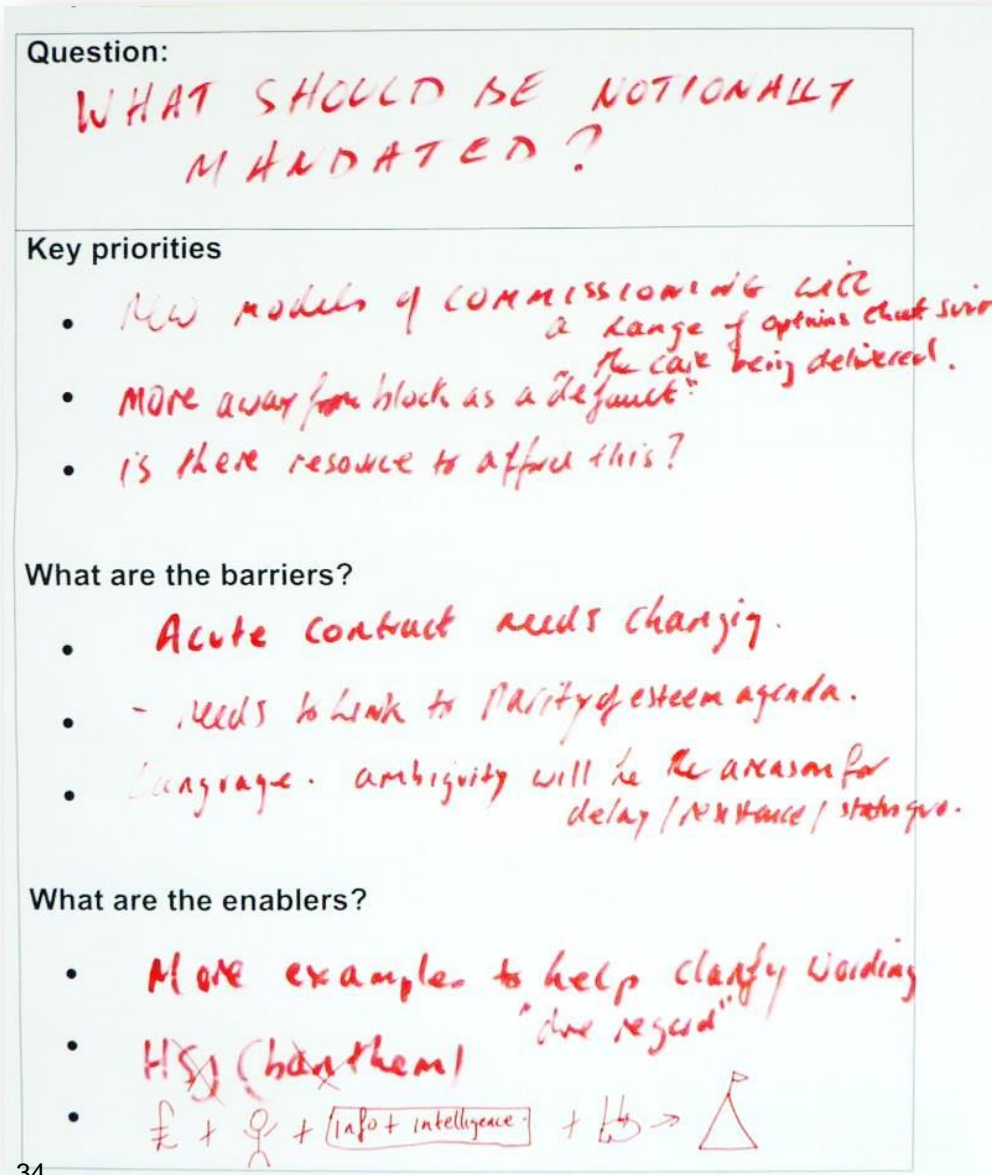 Question:
WHAT SHOULD BE NOTIONALLY
MANDATED?
Key priorities
• New models of COMMISSIONING with
a range of options that suit
the care being delivered.
• More away from block as a "default"
• is there resource to afford this?
What are the barriers?
• Acute contract needs changing.
• - Needs to link to Parity of esteem agenda.
• Language. ambiguity will be the reason for
delay / resistance / status quo.
What are the enablers?
• More examples to help clarify wording
"due regard"
• HSJ (ban them)
• £ + + info + intelligence. + →
34